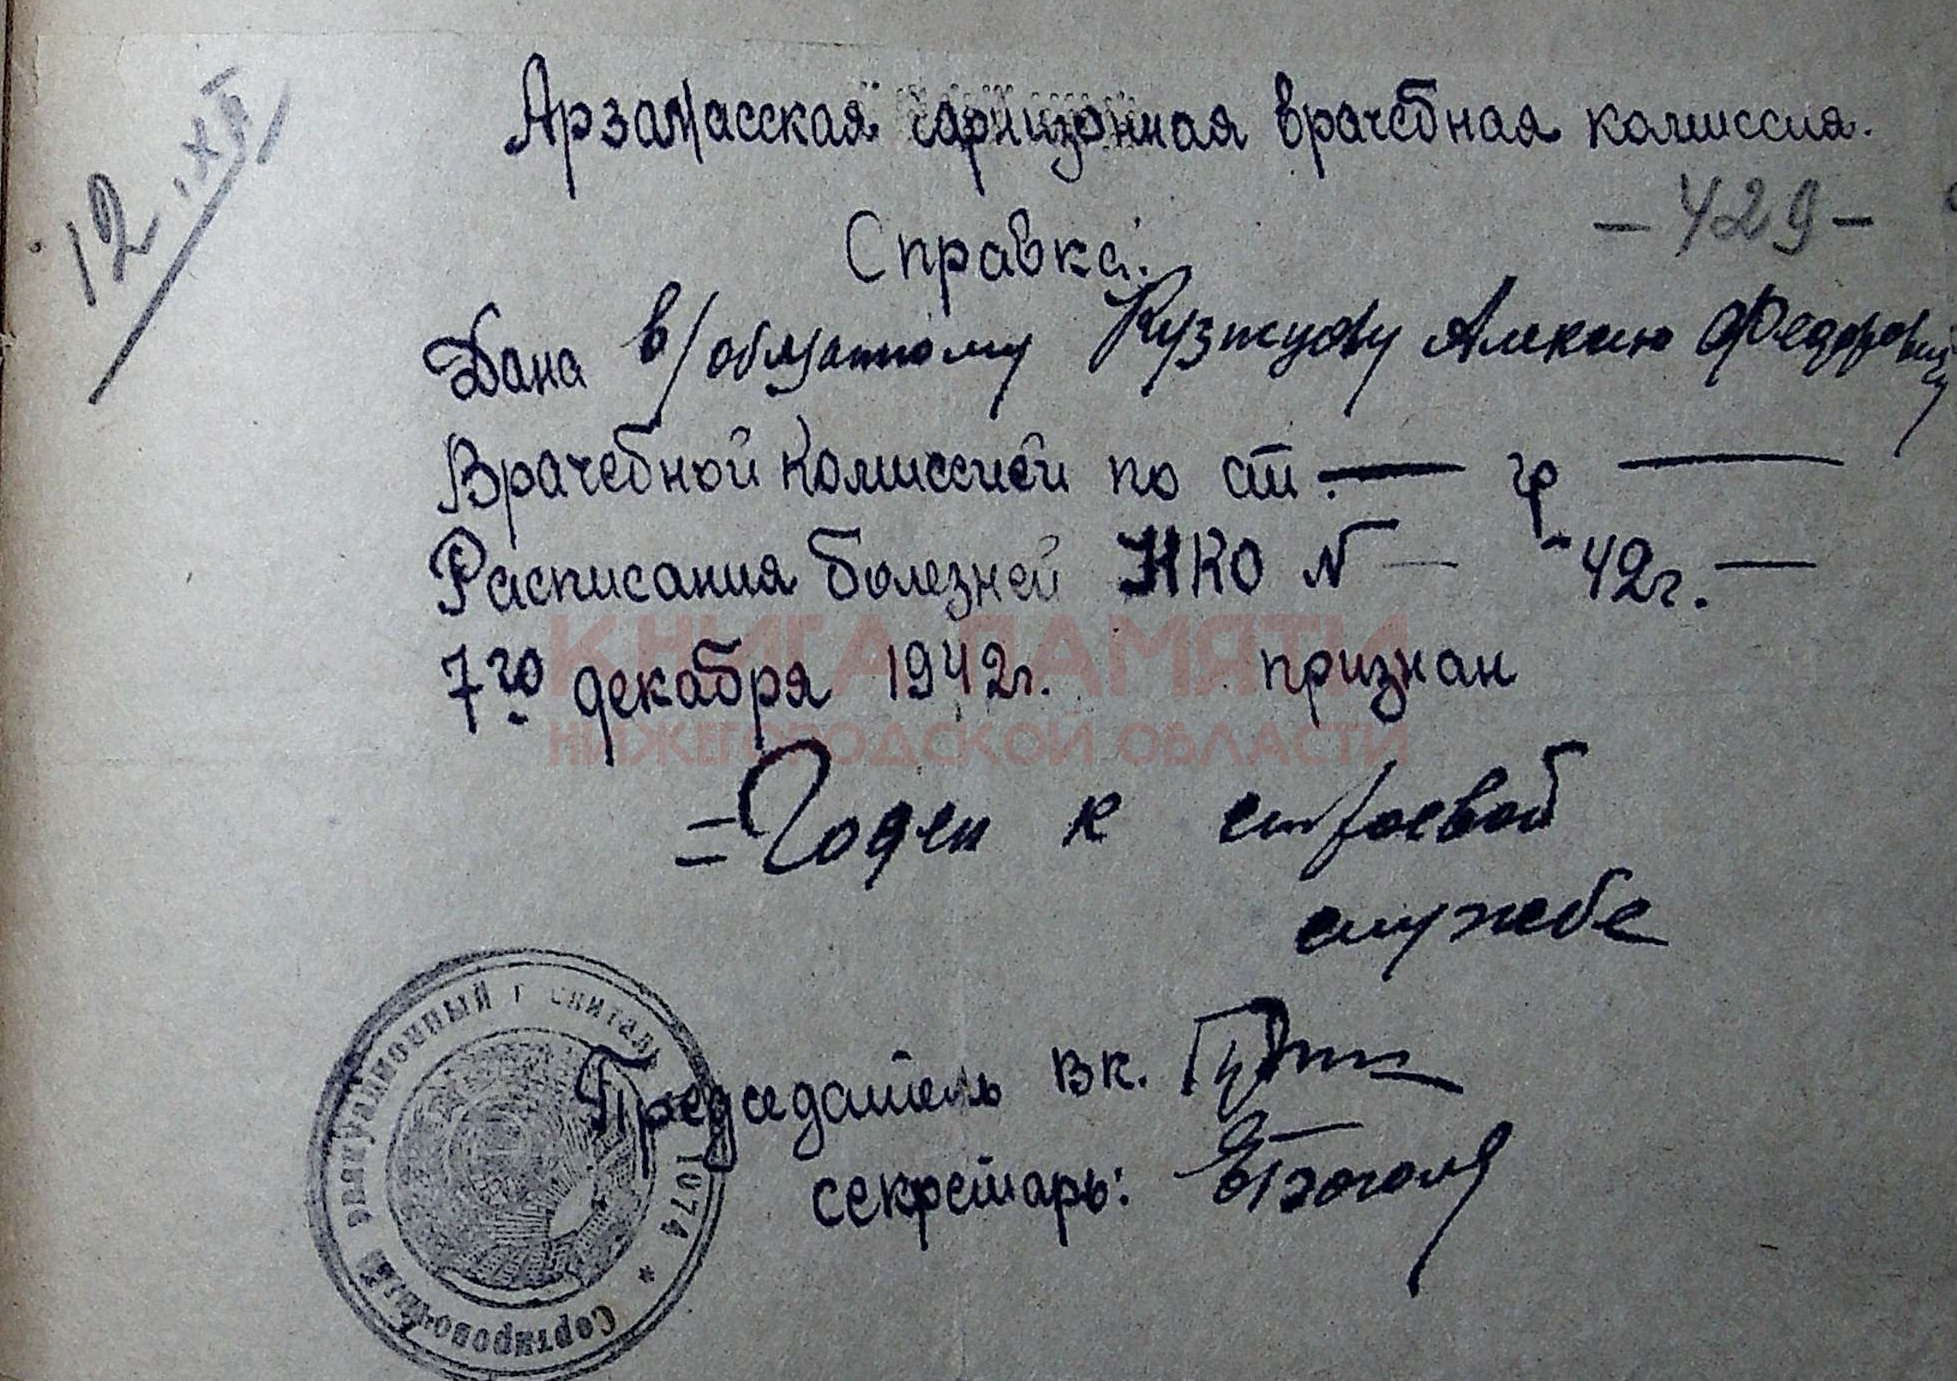 12.XII
Арзамасская гарнизонная врачебная комиссия.
- 429 -
Справка.
Дана в/обязанному Кузнецову Алексею Федоровичу
Врачебной Комиссией по ст. — гр —
Расписания болезней НКО № — -42г. —
7го декабря 1942г. признан
КНИГА ПАМЯТИ
НИЖЕГОРОДСКОЙ ОБЛАСТИ
= Годен к строевой
службе
Председатель ВК.
секретарь:
Сортировочный эвакуационный госпиталь 1074 *